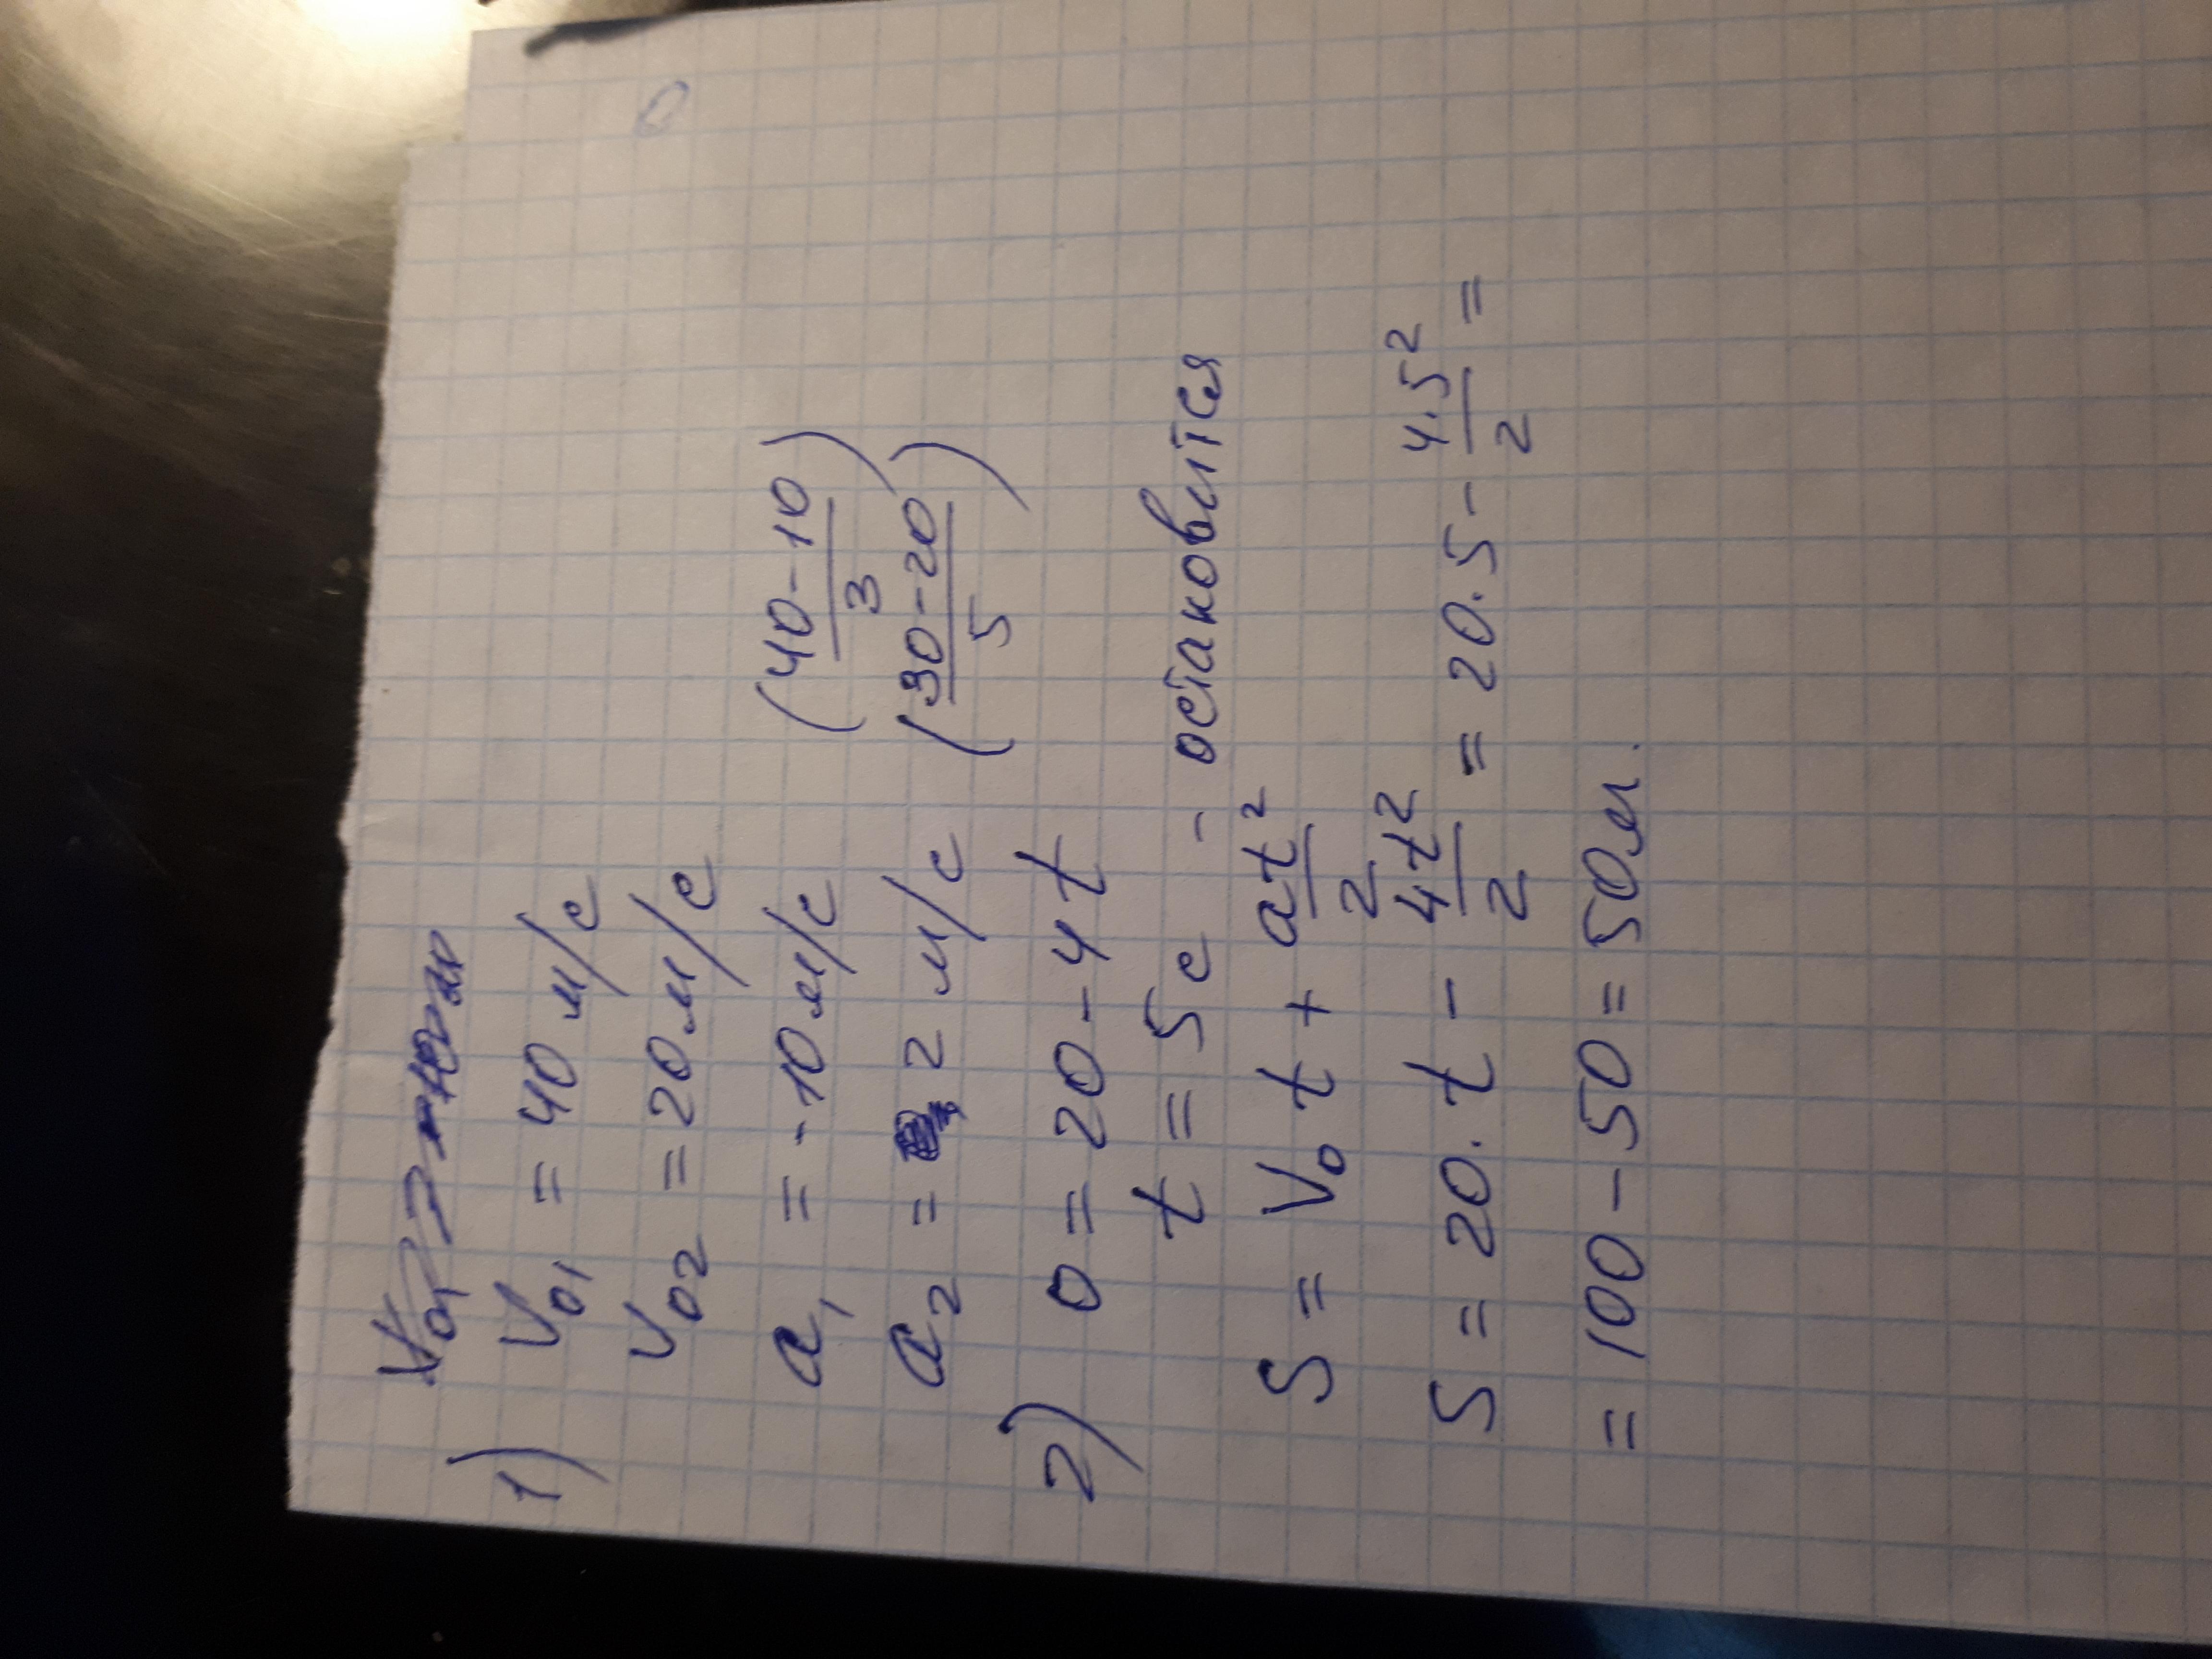 1) V₀₁ = 40 м/с
V₀₂ = 20 м/с
a₁ = -10 м/с (40-10/3)
a₂ = 2 м/с (30-20/5)
2) 0 = 20 - 4t
t = 5 с - остановится
S = V₀t + at²/2
S = 20·t - 4t²/2 = 20·5 - 4·5²/2 =
= 100 - 50 = 50 м.